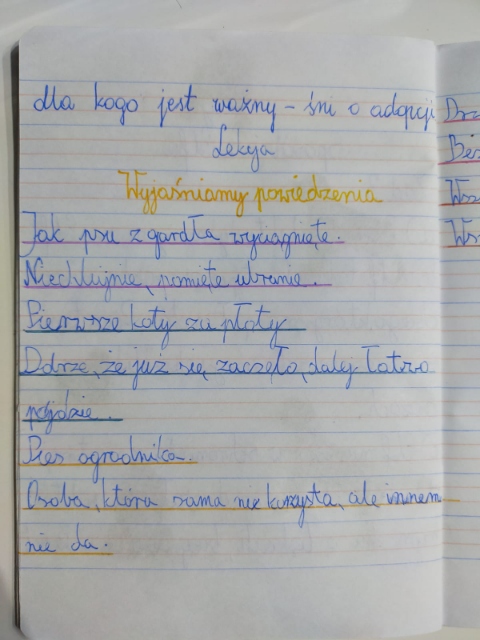 dla kogo jest ważny - śni o adopcji
Lekcja
Wyjaśniamy powiedzenia
Jak psu z gardła wyciągnięte.
Niechlujnie, pomięte ubranie.
Pierwsze koty za płoty
Dobrze, że już się zaczęło, dalej łatwo
pójdzie.
Pies ogrodnika.
Osoba, która sama nie korzysta, ale innem
nie da.